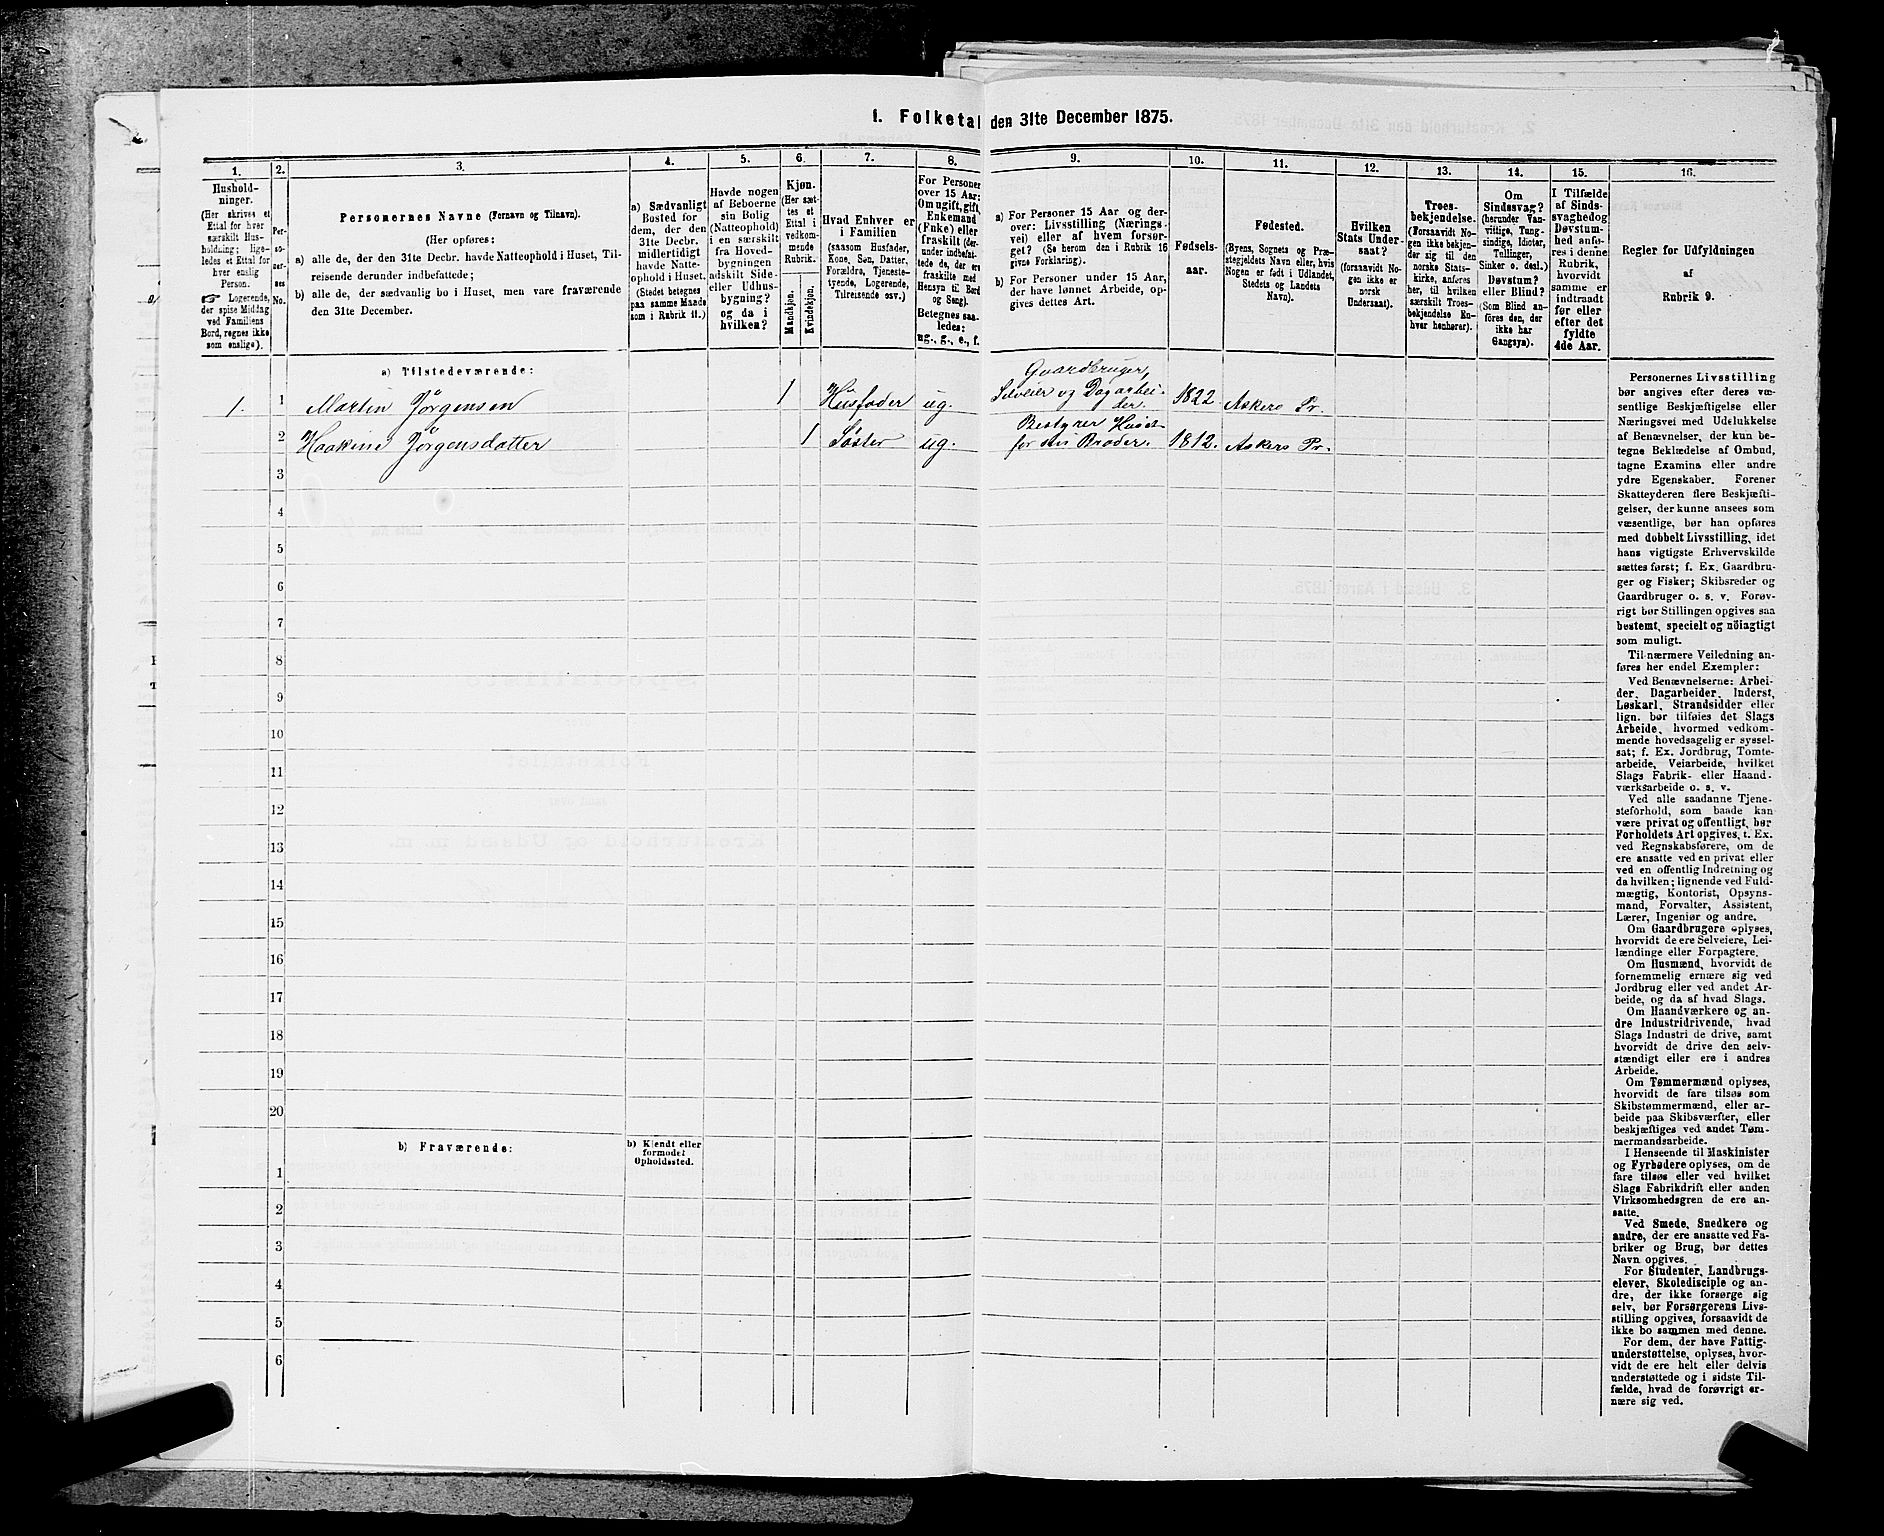 1. Folketal den 31te December 1875.
1.
2.
3.
4.
5.
6.
7.
8.
9.
10.
11.
12.
13.
14.
15.
16.
Hushold-
ninger.
(Her skrives et
Ettal for hver
særskilt Hus-
holdning; lige-
ledes et Ettal for
hver enslig
Person.
☞ Logerende,
der spise Middag
ved Familiens
Bord, regnes ikke
som enslige).
Per-
so-
ner-
nes
No.
Personernes Navne (Fornavn og Tilnavn).
(Her opføres:
a) alle de, der den 31te Decbr. havde Natteophold i Huset, Til-
reisende derunder indbefattede;
b) alle de, der sædvanlig bo i Huset, men vare fraværende
den 31te December.
a) Sædvanligt
Bosted for
dem, der den
31te Decbr.
midlertidigt
havde Natte-
ophold i Huset.
(Stedet betegnes
paa samme Maade
som i Rubrik 11.)
Havde nogen
af Beboerne
sin Bolig
(Natteophold)
i en særskilt
fra Hoved-
bygningen
adskilt Side-
eller Udhus-
bygning?
og da i
hvilken?
Kjøn.
(Her sæt-
tes et
Ettal i
vedkom-
mende
Rubrik.
Mandkjøn.
Kvindekjøn.
Hvad Enhver er
i Familien
(saasom Husfader,
Kone, Søn, Datter,
Forældre, Tjeneste-
tyende, Logerende,
Tilreisende osv.)
For Personer
over 15 Aar:
Om ugift, gift,
Enkemand
(Enke) eller
fraskilt (der-
under indbefat-
tede de, der ere
fraskilte med
Hensyn til Bord
og Seng).
Betegnes saa-
ledes:
ug., g., e., f.
a) For Personer 15 Aar og der-
over: Livsstilling (Nærings-
vei) eller af hvem forsør-
get? (Se herom den i Rubrik 16
givne Forklaring).
b) For Personer under 15 Aar,
der have lønnet Arbeide, op-
gives dettes Art.
Fødsels-
aar.
Fødested.
(Byens, Sognets og Præ-
stegjeldets Navn eller, hvis
Nogen er født i Udlandet,
Stedets og Landets
Navn).
Hvilken
Stats Under-
saat?
(forsaavidt No-
gen ikke er
norsk
Undersaat).
Troes-
bekjendelse.
(Forsaavidt No-
gen ikke bekjen-
der sig til den
norske Stats-
kirke, anføres
her, til hvilken
særskilt Troes-
bekjendelse En-
hver henhører).
Om
Sindssvag?
(herunder Van-
vittige, Tung-
sindige, Idioter,
Tullinger,
Sinker o. desl.)
Døvstum?
eller Blind?
(Som Blind an-
føres den, der
ikke har
Gangsyn).
I Tilfælde
af Sinds-
svaghed og
Døvstum-
hed anfø-
res i denne
Rubrik,
hvorvidt
samme er
indtraadt
før eller
efter det
fyldte
4de Aar.
Regler for Udfyldningen
af
Rubrik 9.
a) Tilstedeværende:
1.
1
Martin Jörgensen
1
Husfader
ug.
Gaardbruger,
Selveier og Dagarbei-
der.
1822
Askers Pr.
2
Haakine Jörgensdatter
1
Søster
ug.
Bestyrer Huset
for sin Broder.
1812.
Askers Pr.
3
4
5
6
7
8
9
10
11
12
13
14
15
16
17
18
19
20
b) Fraværende:
b) Kjendt eller
formodet
Opholdssted.
1
2
3
4
5
6
Personernes Livsstilling
bør angives efter deres væ-
sentlige Beskjæftigelse eller
Næringsvei med Udelukkelse
af Benævnelser, der kun be-
tegne Beklædelse af Ombud,
tagne Examina eller andre
ydre Egenskaber. Forener
Skatteyderen flere Beskjæfti-
gelser, der kunne ansees som
væsentlige, bør han opføres
med dobbelt Livsstilling, idet
hans vigtigste Erhvervskilde
sættes først; f. Ex. Gaardbru-
ger og Fisker; Skibsreder og
Gaardbruger o. s. v. Forøv-
rigt bør Stillingen opgives saa
bestemt, specielt og nöiagtigt
som muligt.
Til nærmere Veiledning an-
føres her endel Exempler:
Ved Benævnelserne: Arbei-
der, Dagarbeider, Inderst,
Løskarl, Strandsidder eller
lign. bør tilføies det Slags
Arbeide, hvormed vedkom-
mende hovedsagelig er syssel-
sat; f. Ex. Jordbrug, Tomte-
arbeide, Veiarbeide, hvilket
Slags Fabrik- eller Haand-
værksarbeide o. s. v.
Ved alle saadanne Tjene-
steforhold, som baade kan
være privat og offentligt, bør
Forholdets Art opgives, t. Ex.
ved Regnskabsførere, om de
ere ansatte ved en privat eller
ved en offentlig Indretning og
da hvilken; lignende ved Fuld-
mægtig, Kontorist, Opsyns-
mand, Forvalter, Assistent,
Lærer, Ingeniør og andre.
Om Gaardbrugere oplyses,
hvorvidt de ere Selveiere, Lei-
lændinge eller Forpagtere.
Om Husmænd, hvorvidt de
fornemmelig ernære sig ved
Jordbrug eller ved andet Ar-
beide, og da af hvad Slags.
Om Haandværkere og an-
dre Industridrivende, hvad
Slags Industri de drive, samt
hvorvidt de drive den selv-
stændigt eller ere i andres
Arbeide.
Om Tømmermænd oplyses,
hvorvidt de fare tilsøs som
Skibstømmermænd, eller ar-
beide paa Skibsværfter, eller
beskjæftiges ved andet Tøm-
mermandsarbeide.
I Henseende til Maskinister
og Fyrbødere oplyses, om de
fare tilsøs eller ved hvilket
Slags Fabrikdrift eller anden
Virksomhedsgren de ere an-
satte.
Ved Smede, Snedkere og
andre, der ere ansatte ved Fa-
briker og Brug, bør dettes
Navn opgives.
For Studenter, Landbrugs-
elever, Skoledisciple og an-
dre, der ikke forsørge sig
selv, bør Forsørgerens Livs-
stilling opgives, forsaavidt de
ikke bo sammen med denne.
For dem, der have Fattig-
understøttelse, oplyses, hvor-
vidt de ere helt eller delvis
understøttede og i sidste Til-
fælde, hvad de forøvrigt er-
nære sig ved.